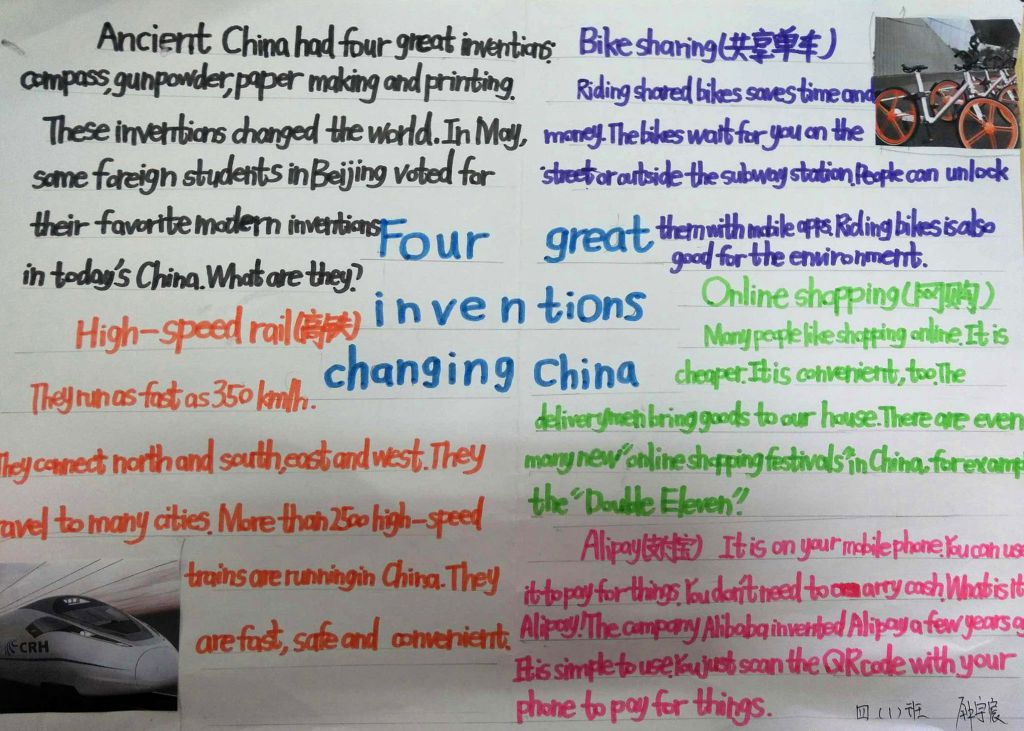 Ancient China had four great inventions:
compass, gunpowder, paper making and printing.
These inventions changed the world. In May,
some foreign students in Beijing voted for
their favorite modern inventions
in today's China. What are they?
Four great
inventions
changing China
High-speed rail(高铁)
They run as fast as 350 km/h.
They connect north and south, east and west. They
ravel to many cities. More than 2500 high-speed
trains are running in China. They
are fast, safe and convenient.
CRH
Bike sharing(共享单车)
Riding shared bikes saves time and
money. The bikes wait for you on the
street or outside the subway station. People can unlock
them with mobile apps. Riding bikes is also
good for the environment.
Online shopping(网购)
Many people like shopping online. It is
cheaper. It is convenient, too. The
deliverymen bring goods to our house. There are even
many new "online shopping festivals" in China, for examp
the "Double Eleven".
Alipay(支付宝) It is on your mobile phone. You can use
it to pay for things. You don't need to carry cash. What is it
Alipay! The company Alibaba invented Alipay a few years ag
It is simple to use. You just scan the QR code with your
phone to pay for things.
四(1)班